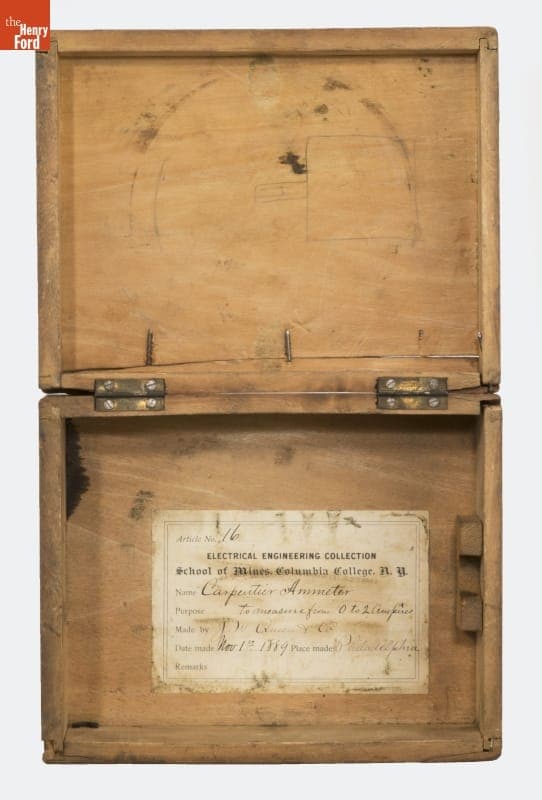 the
Henry
Ford
Article No. 16
ELECTRICAL ENGINEERING COLLECTION
School of Mines. Columbia College. N. Y.
Name Carpentier Ammeter
Purpose to measure from 0 to 2 Amperes
Made by & Co
Date made Nov. 1st 1889 Place made Philadelphia
Remarks